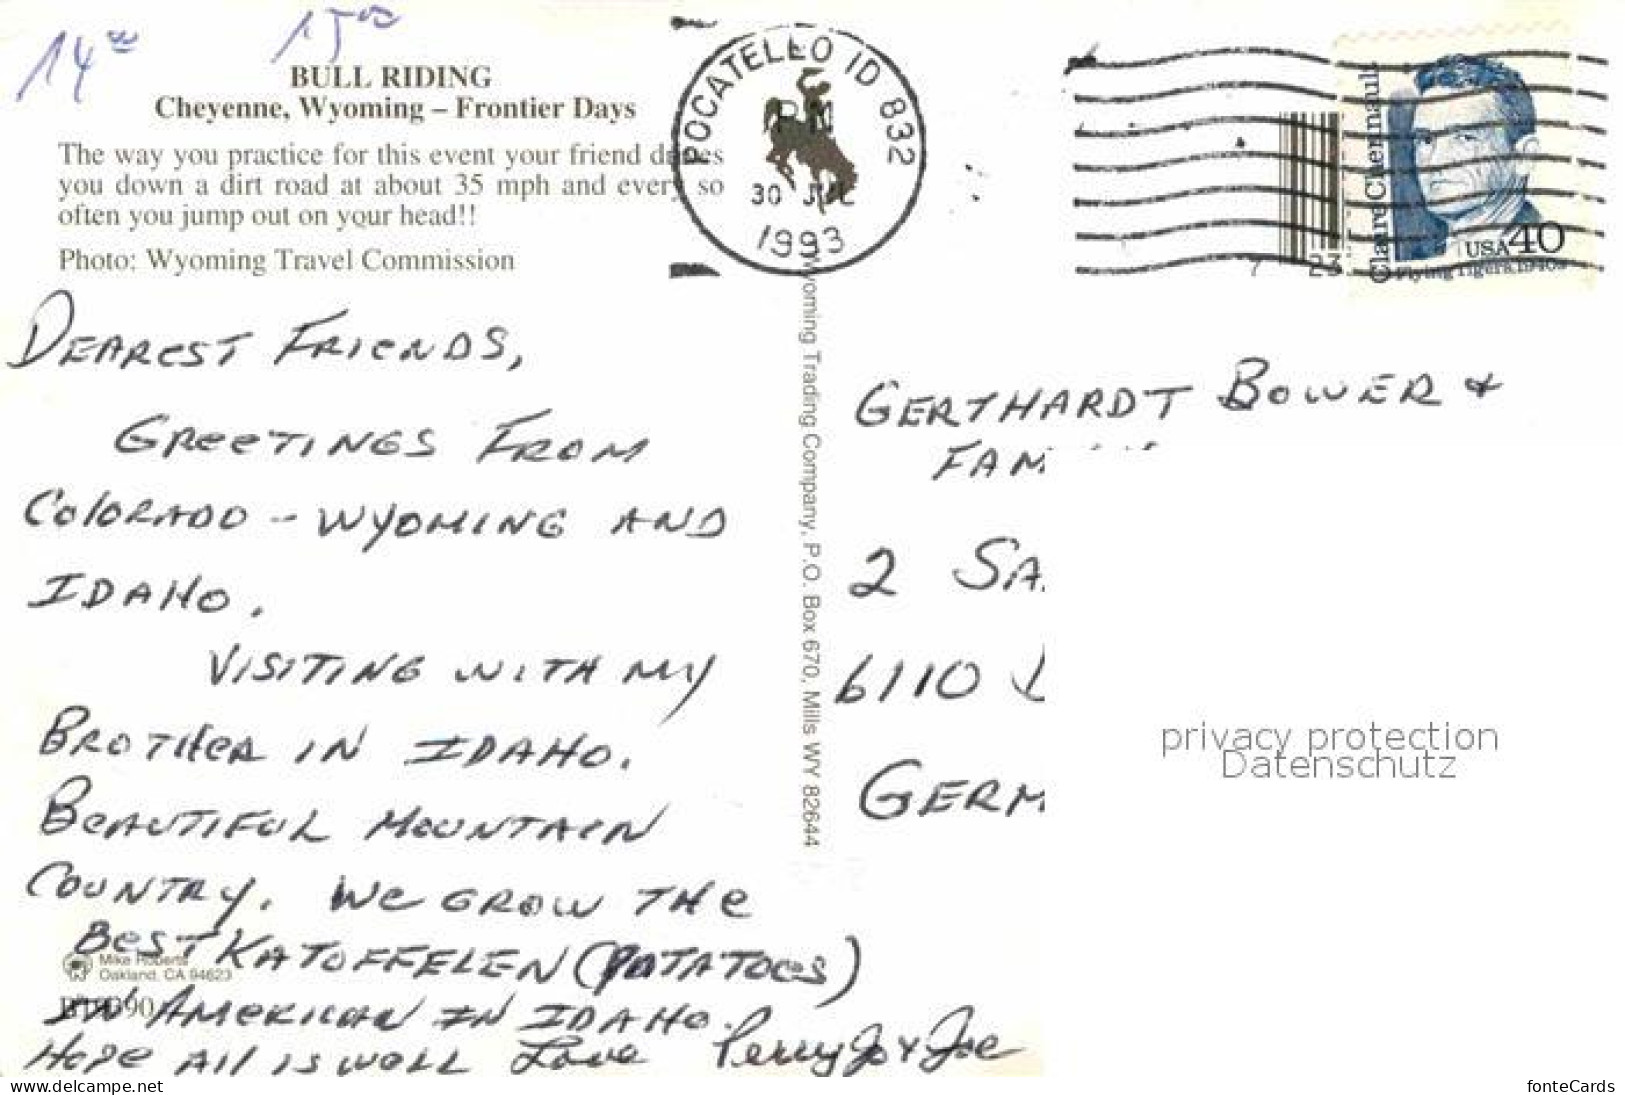 14 00
15 00
BULL RIDING
Cheyenne, Wyoming – Frontier Days
The way you practice for this event your friend drives
you down a dirt road at about 35 mph and every so
often you jump out on your head!!
Photo: Wyoming Travel Commission
POCATELLO ID 832
PM
30 JUL
1993
Claire Chennault
USA 40
Flying Tigers, 1940s
7 23
Wyoming Trading Company, P.O. Box 670, Mills WY 82644
DEAREST FRIENDS,
GREETINGS FROM
COLORADO - WYOMING AND
IDAHO.
VISITING WITH MY
BROTHER IN IDAHO.
BEAUTIFUL MOUNTAIN
COUNTRY. WE GROW THE
BEST KATOFFELEN (POTATOES)
IN AMERICAN IN IDAHO.
HOPE All IS WELL Love Perry Jo & Joe
Mike Roberts
Oakland, CA 94623
GERTHARDT BOWER &
FAM
2 SA
6110
GERM
privacy protection
Datenschutz
www.ansichtskartencenter.de
fonteCards